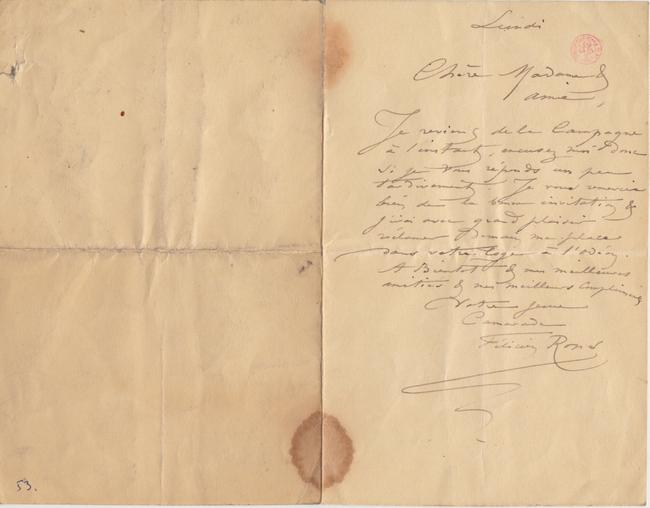 Lundi
Chère Madame &
amie,
Je reviens de la Campagne
à l'instant, excusez moi donc
si je vous réponds un peu
tardivement. Je vous remercie
bien de la bonne invitation &
j'irai avec grand plaisir
réclamer Demain ma place
dans votre Loge à l'odéon.
A Bientôt & mes meilleures
amitiés & mes meilleurs Compliments
Votre jeune
Camarade
Félicien Rops
53.